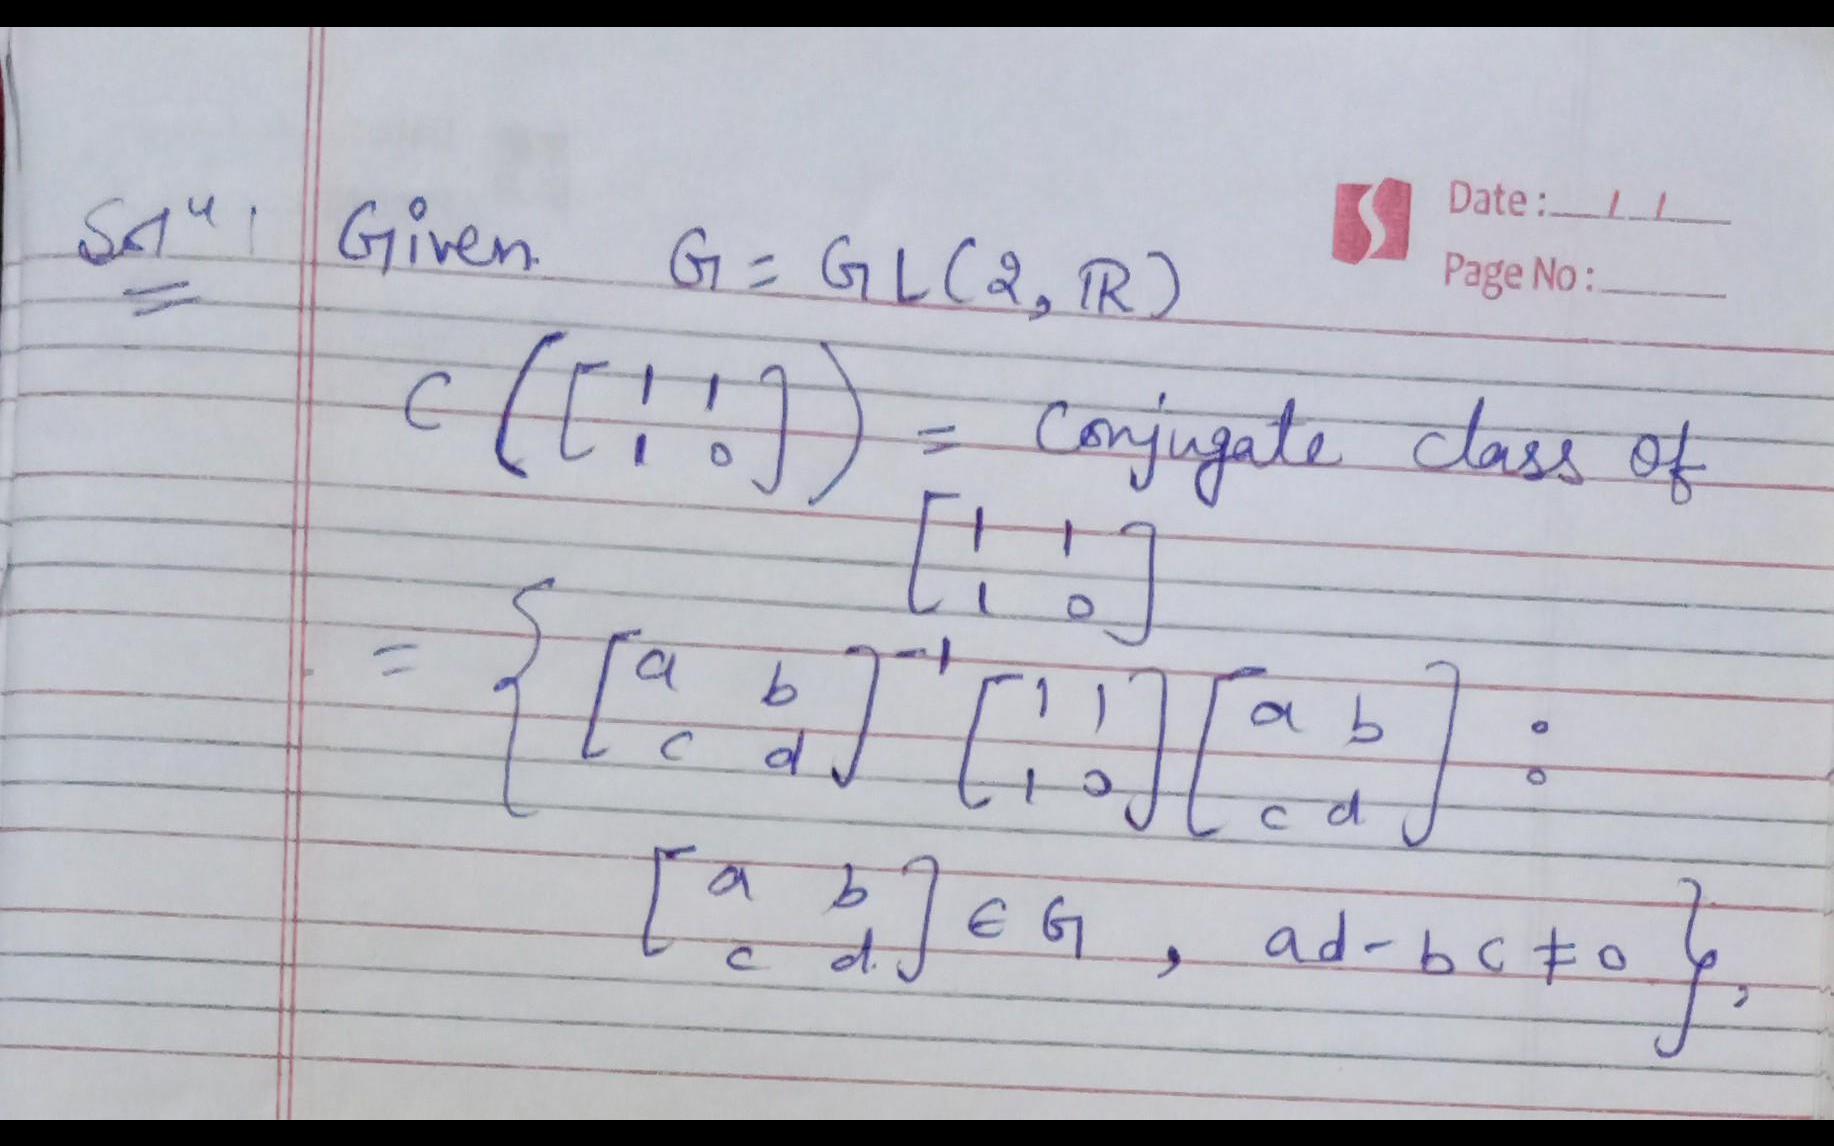 Date: / /
Page No:
Solⁿ: Given G = GL(2, ℝ)
C([1 1; 1 0]) = Conjugate class of
[1 1; 1 0]
= { [a b; c d]⁻¹ [1 1; 1 0] [a b; c d] :
[a b; c d] ∈ G , ad - bc ≠ 0 },